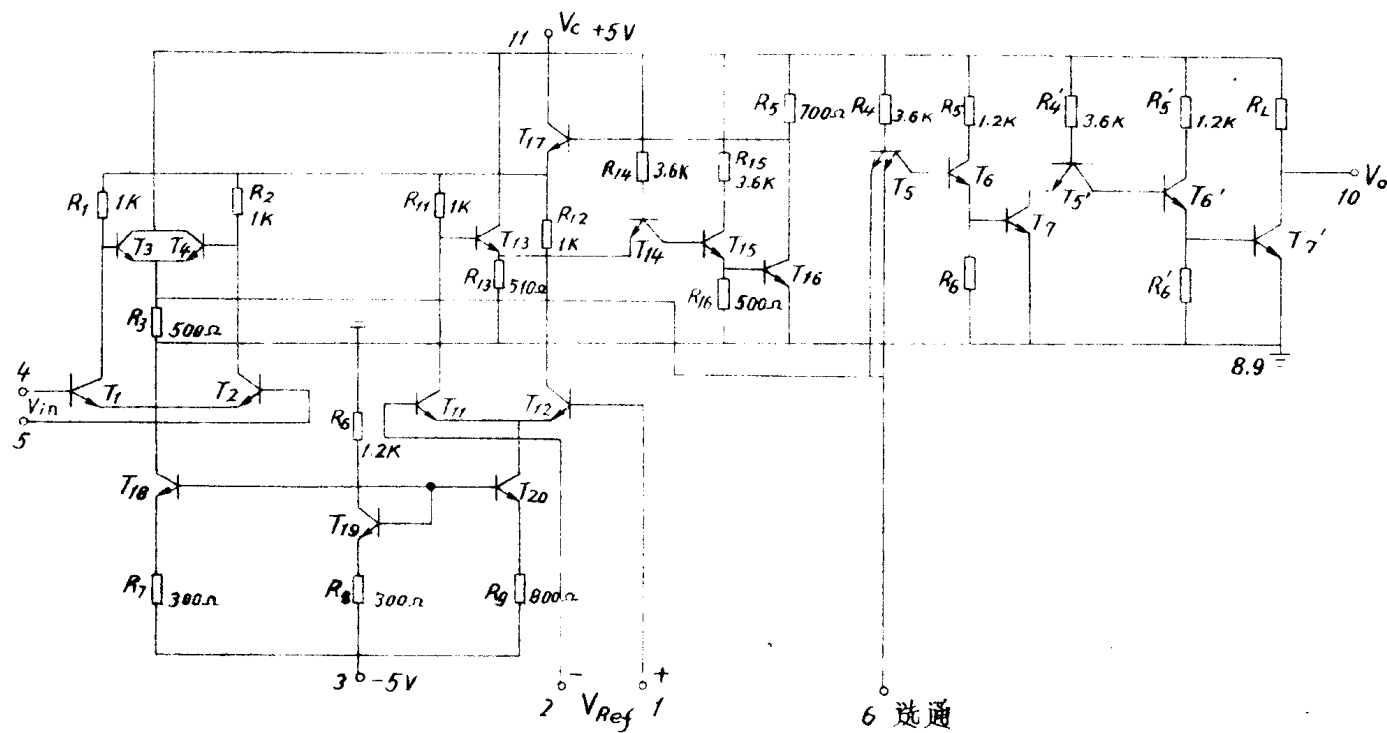 11
Vc +5V
R5 700Ω
R4 3.6K
R5 1.2K
R4' 3.6K
R5' 1.2K
RL
T17
R14 3.6K
R15 3.6K
R1 1K
R2 1K
R11 1K
R12 1K
T3
T4
T13
T14
T15
T16
T5
T6
T7
T5'
T6'
T7'
Vo
10
R13 510Ω
R16 500Ω
R6
R6'
R3 500Ω
8.9
4
Vin
5
T1
T2
R6 1.2K
T11
T12
T18
T19
T20
R7 300Ω
R8 300Ω
R9 800Ω
3
-5V
-
+
2
VRef
1
6 选通